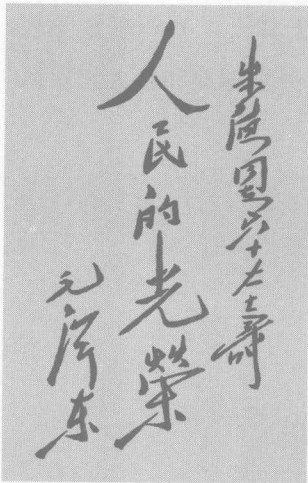 朱德同志六十大壽
人民的光榮
毛泽东